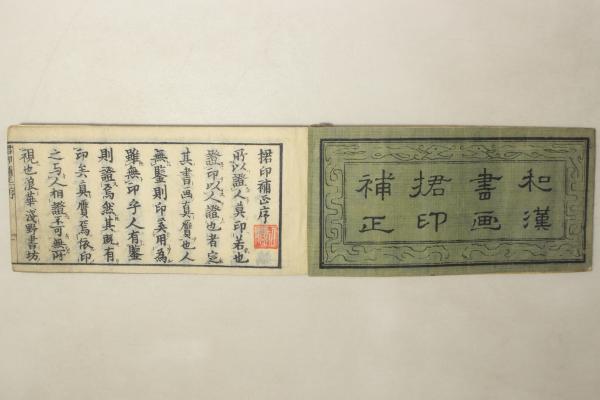 和漢
書画
捃印
補正
捃印補正序
所以證人莫印若也
證印以人證也者定
其書画真贋也人
無鑒則印奚用為
雖無印乎人有鑒
則證為然其既有
印矣真贋焉依印
之与人相證不可無所
視也浪華浅野書坊